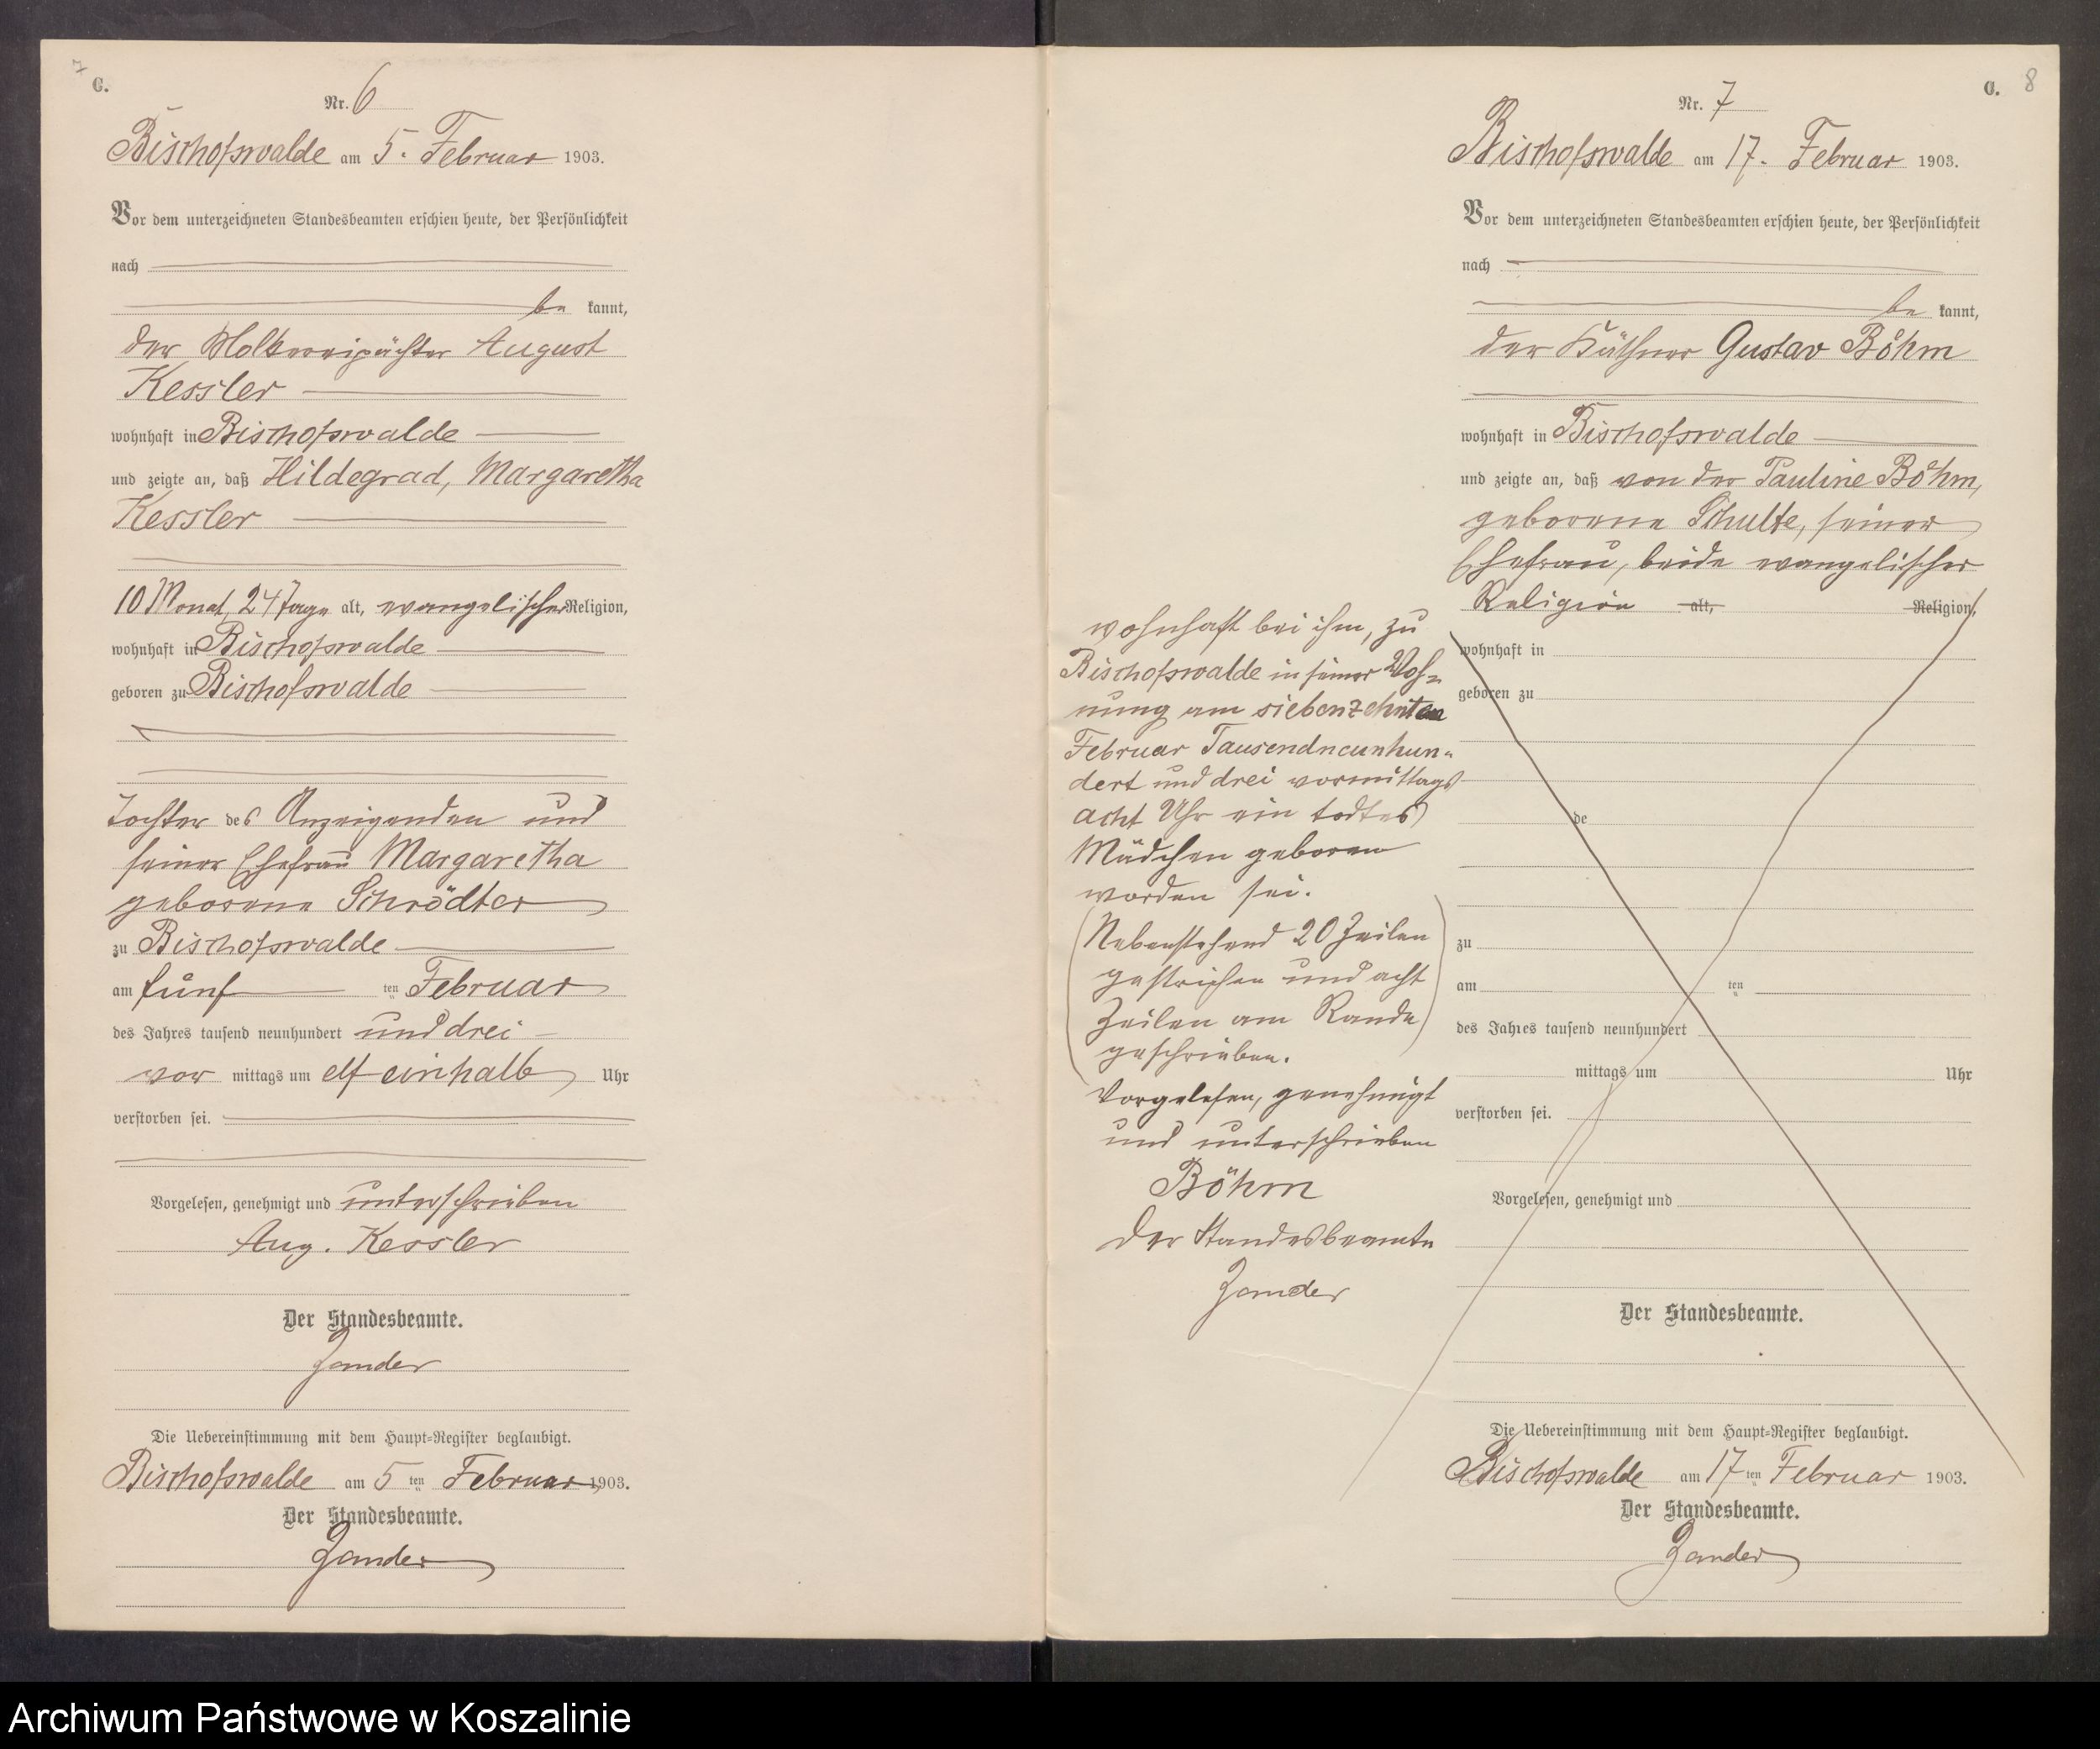 7
C.
Nr. 6
Bischofswalde am 5. Februar 1903.
Vor dem unterzeichneten Standesbeamten erschien heute, der Persönlichkeit
nach
be kannt,
der Molkereipächter August
Kessler
wohnhaft in Bischofswalde
und zeigte an, daß Hildegrad, Margaretha
Kessler
10 Monat, 24 Tage alt, evangelischer Religion,
wohnhaft in Bischofswalde
geboren zu Bischofswalde
Tochter des Anzeigenden und
seiner Ehefrau Margaretha
geborene Schrödter
zu Bischofswalde
am fünf ten Februar
des Jahres tausend neunhundert und drei
vor mittags um elf einhalb Uhr
verstorben sei.
Vorgelesen, genehmigt und unterschrieben
Aug. Kessler
Der Standesbeamte.
Zander
Die Uebereinstimmung mit dem Haupt-Register beglaubigt.
Bischofswalde am 5 ten Februar 1903.
Der Standesbeamte.
Zander
C. 8
Nr. 7
Bischofswalde am 17. Februar 1903.
Vor dem unterzeichneten Standesbeamten erschien heute, der Persönlichkeit
nach
be kannt,
der Käthner Gustav Böhm
wohnhaft in Bischofswalde
und zeigte an, daß von der Pauline Böhm,
geborene Schulte, seiner
Ehefrau, beide evangelischer
Religion alt, Religion,
wohnhaft bei ihm, zu
Bischofswalde in seiner Woh-
nung am siebenzehnten
Februar Tausendneunhun-
dert und drei vormittags
acht Uhr ein todtes
Mädchen geboren
worden sei.
(Nebenstehend 20 Zeilen
gestrichen und acht
Zeilen am Rande
geschrieben.)
Vorgelesen, genehmigt
und unterschrieben
Böhm
Der Standesbeamte
Zander
wohnhaft in
geboren zu
de
zu
am ten
des Jahres tausend neunhundert
mittags um Uhr
verstorben sei.
Vorgelesen, genehmigt und
Der Standesbeamte.
Die Uebereinstimmung mit dem Haupt-Register beglaubigt.
Bischofswalde am 17 ten Februar 1903.
Der Standesbeamte.
Zander
Archiwum Państwowe w Koszalinie